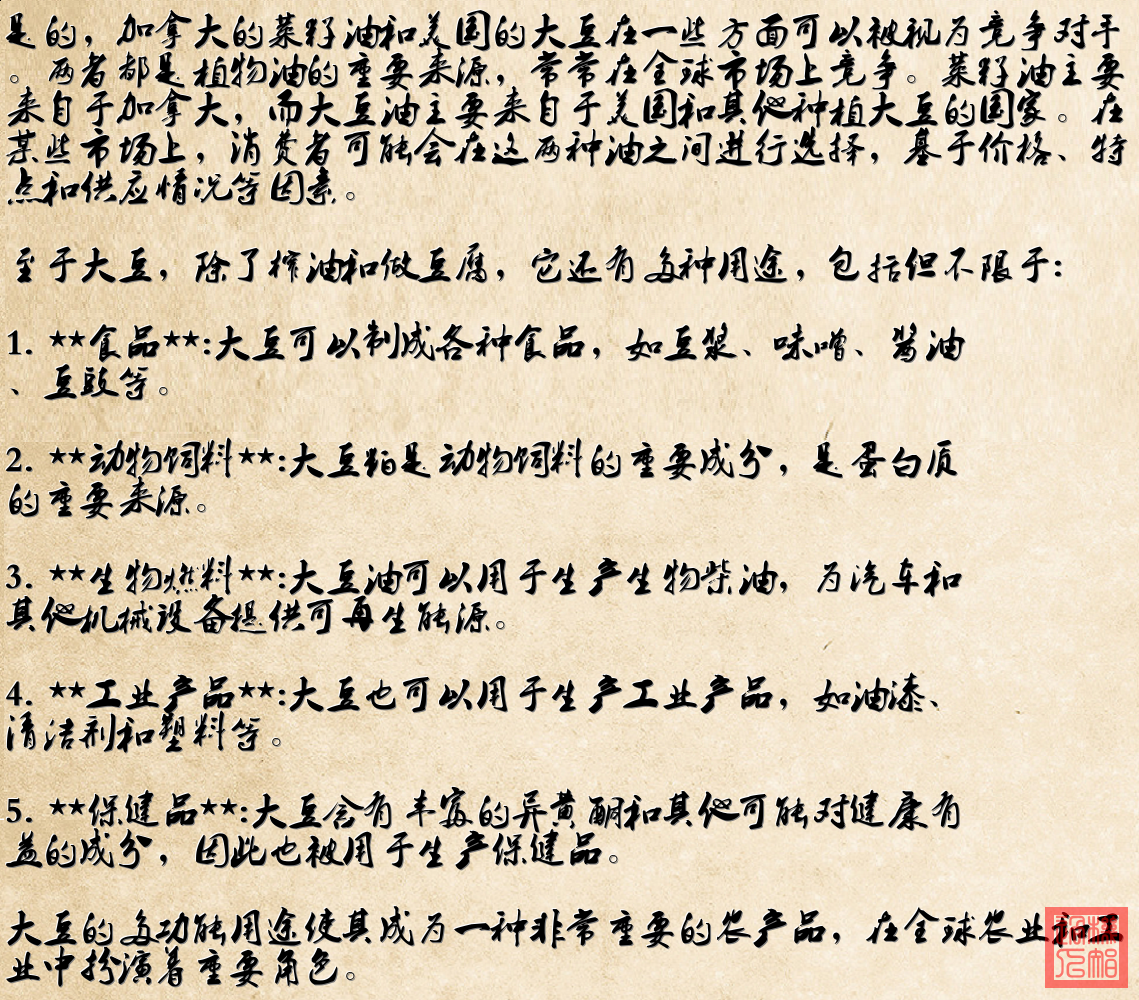 是的，加拿大的菜籽油和美国的大豆在一些方面可以被视为竞争对手
。两者都是植物油的重要来源，常常在全球市场上竞争。菜籽油主要
来自于加拿大，而大豆油主要来自于美国和其他种植大豆的国家。在
某些市场上，消费者可能会在这两种油之间进行选择，基于价格、特
点和供应情况等因素。
至于大豆，除了榨油和做豆腐，它还有多种用途，包括但不限于：
1. **食品**:大豆可以制成各种食品，如豆浆、味噌、酱油
、豆豉等。
2. **动物饲料**:大豆粕是动物饲料的重要成分，是蛋白质
的重要来源。
3. **生物燃料**:大豆油可以用于生产生物柴油，为汽车和
其他机械设备提供可再生能源。
4. **工业产品**:大豆也可以用于生产工业产品，如油漆、
清洁剂和塑料等。
5. **保健品**:大豆含有丰富的异黄酮和其他可能对健康有
益的成分，因此也被用于生产保健品。
大豆的多功能用途使其成为一种非常重要的农产品，在全球农业和工
业中扮演着重要角色。